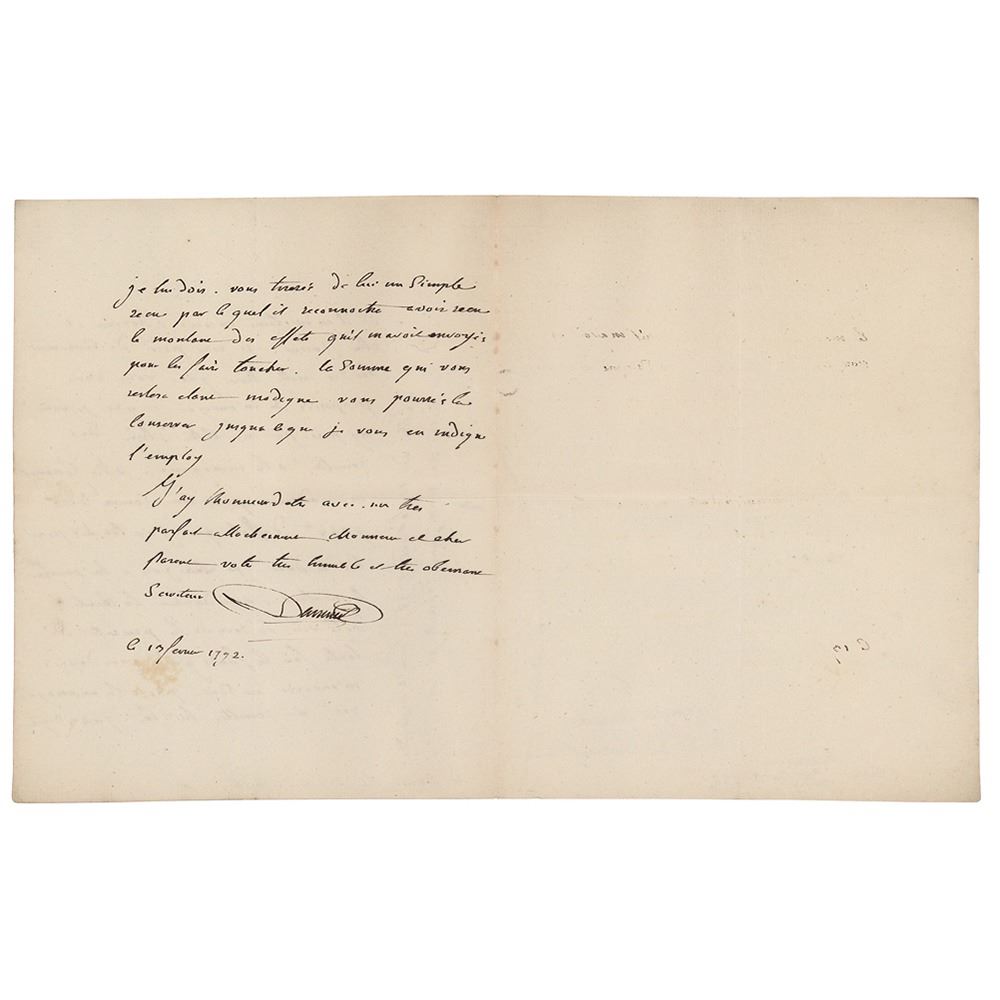 je lui dois. vous tirerés de lui un Simple
recu par lequel il reconnoitra avoir recu
le montant des effets qu'il m'avoit envoyés
pour les faire toucher. la Somme qui vous
restera étant modique vous pourrés la
Conserver jusqu'a ce que je vous en indique
l'employ
J'ay l'honneur d'etre avec un tres
parfait attachement Monsieur et cher
Parent votre tres humble et tres obeissant
Serviteur
le 13 fevrier 1772.